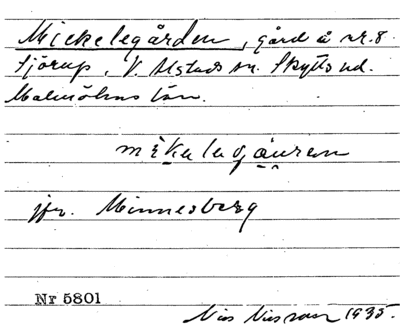 Mickelegården, gård å nr. 8
Sjörup, V. Alstads sn. Skytts hd.
Malmöhus län.
mèkalagáuran
jfr. Minnesberg
Nr 5801
Nils Nilsson 1935.